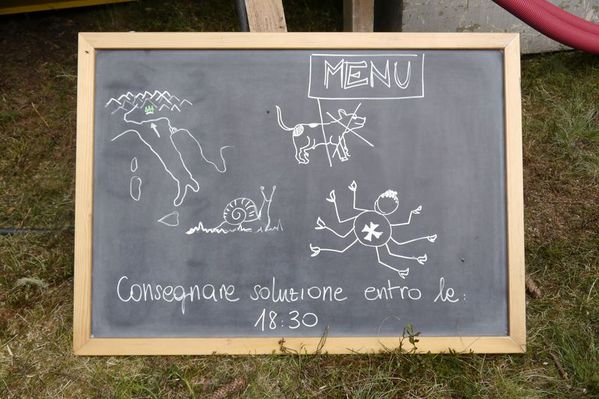 MENU
Consegnare soluzione entro le:
18:30